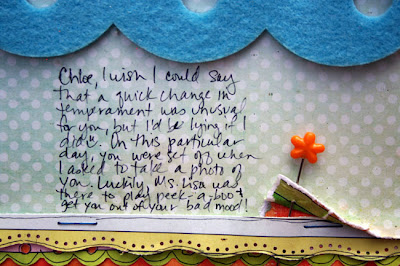 Chloe, I wish I could say
that a quick change in
temperament was unusual
for you, but I'd be lying if I
did. On this particular
day, you were set off when
I asked to take a photo of
you. Luckily, Ms. Lisa was
there to play peek-a-boo &
get you out of your bad mood!